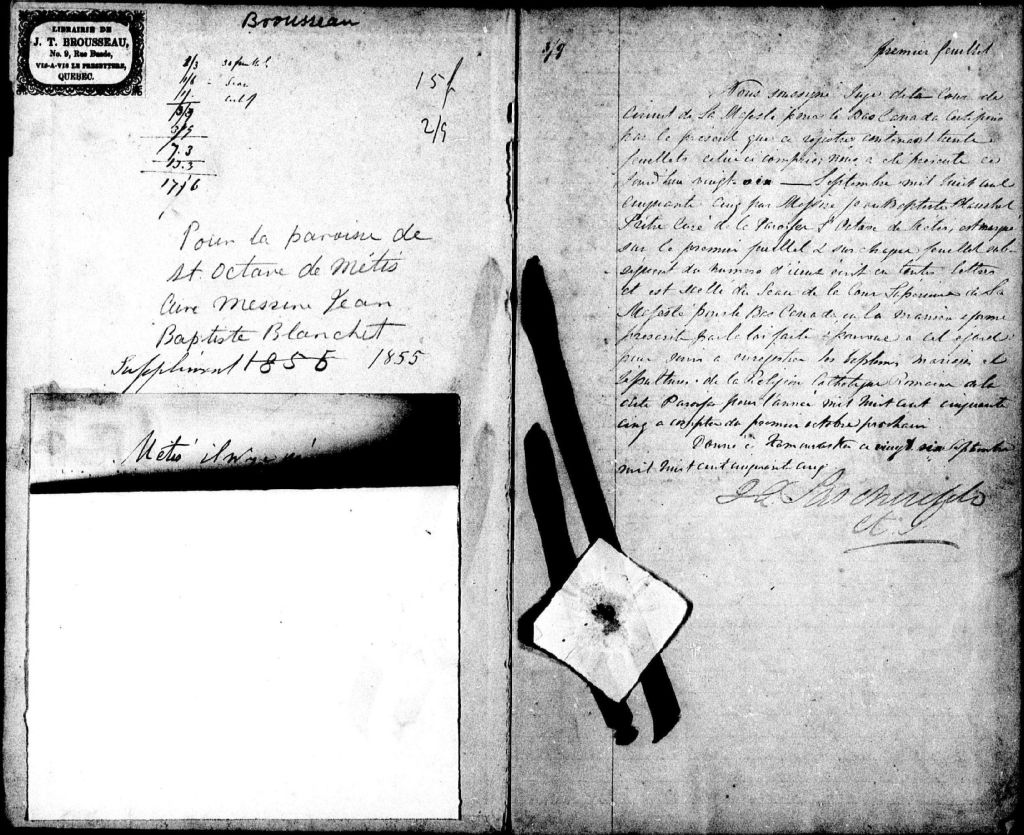 LIBRAIRIE DE
J. T. BROUSSEAU,
No. 9, Rue Buade,
VIS-A-VIS LE PRESBYTERE,
QUEBEC.
Brousseau
2/3
15f
2/9
7.3
13.3
17/6
Pour la paroisse de
St. Octave de Métis
Cure Messire Jean
Baptiste Blanchet
Supplément 1856 1855
Métis il
3/9
premier feuillet
Nous soussigné Juge de la Cour de
Circuit de Sa Majesté pour le Bas Canada Certifions
par le présent que ce registre contenant trente
feuillets celui ci compris, nous a été présenté ce
Jourd'hui vingt six Septembre mil huit cent
cinquante cinq par Messire Jean Baptiste Blanchet
Prêtre Curé de la Paroisse St Octave de Métis, est marqué
sur le premier feuillet & sur chaque feuillet sub-
séquent du numéro d'icelui écrit en toutes lettres
et est scellé du Sceau de la Cour Supérieure de Sa
Majesté pour le Bas Canada en la manière & forme
prescrite par la loi faite & pourvue à cet égard
pour servir à enregistrer les Baptêmes mariages et
sépultures de la Religion Catholique Romaine de la
dite Paroisse pour l'année mil huit cent cinquante
cinq à compter du premier octobre prochain
Donné à Kamouraska ce vingt six septembre
mil huit cent cinquante cinq